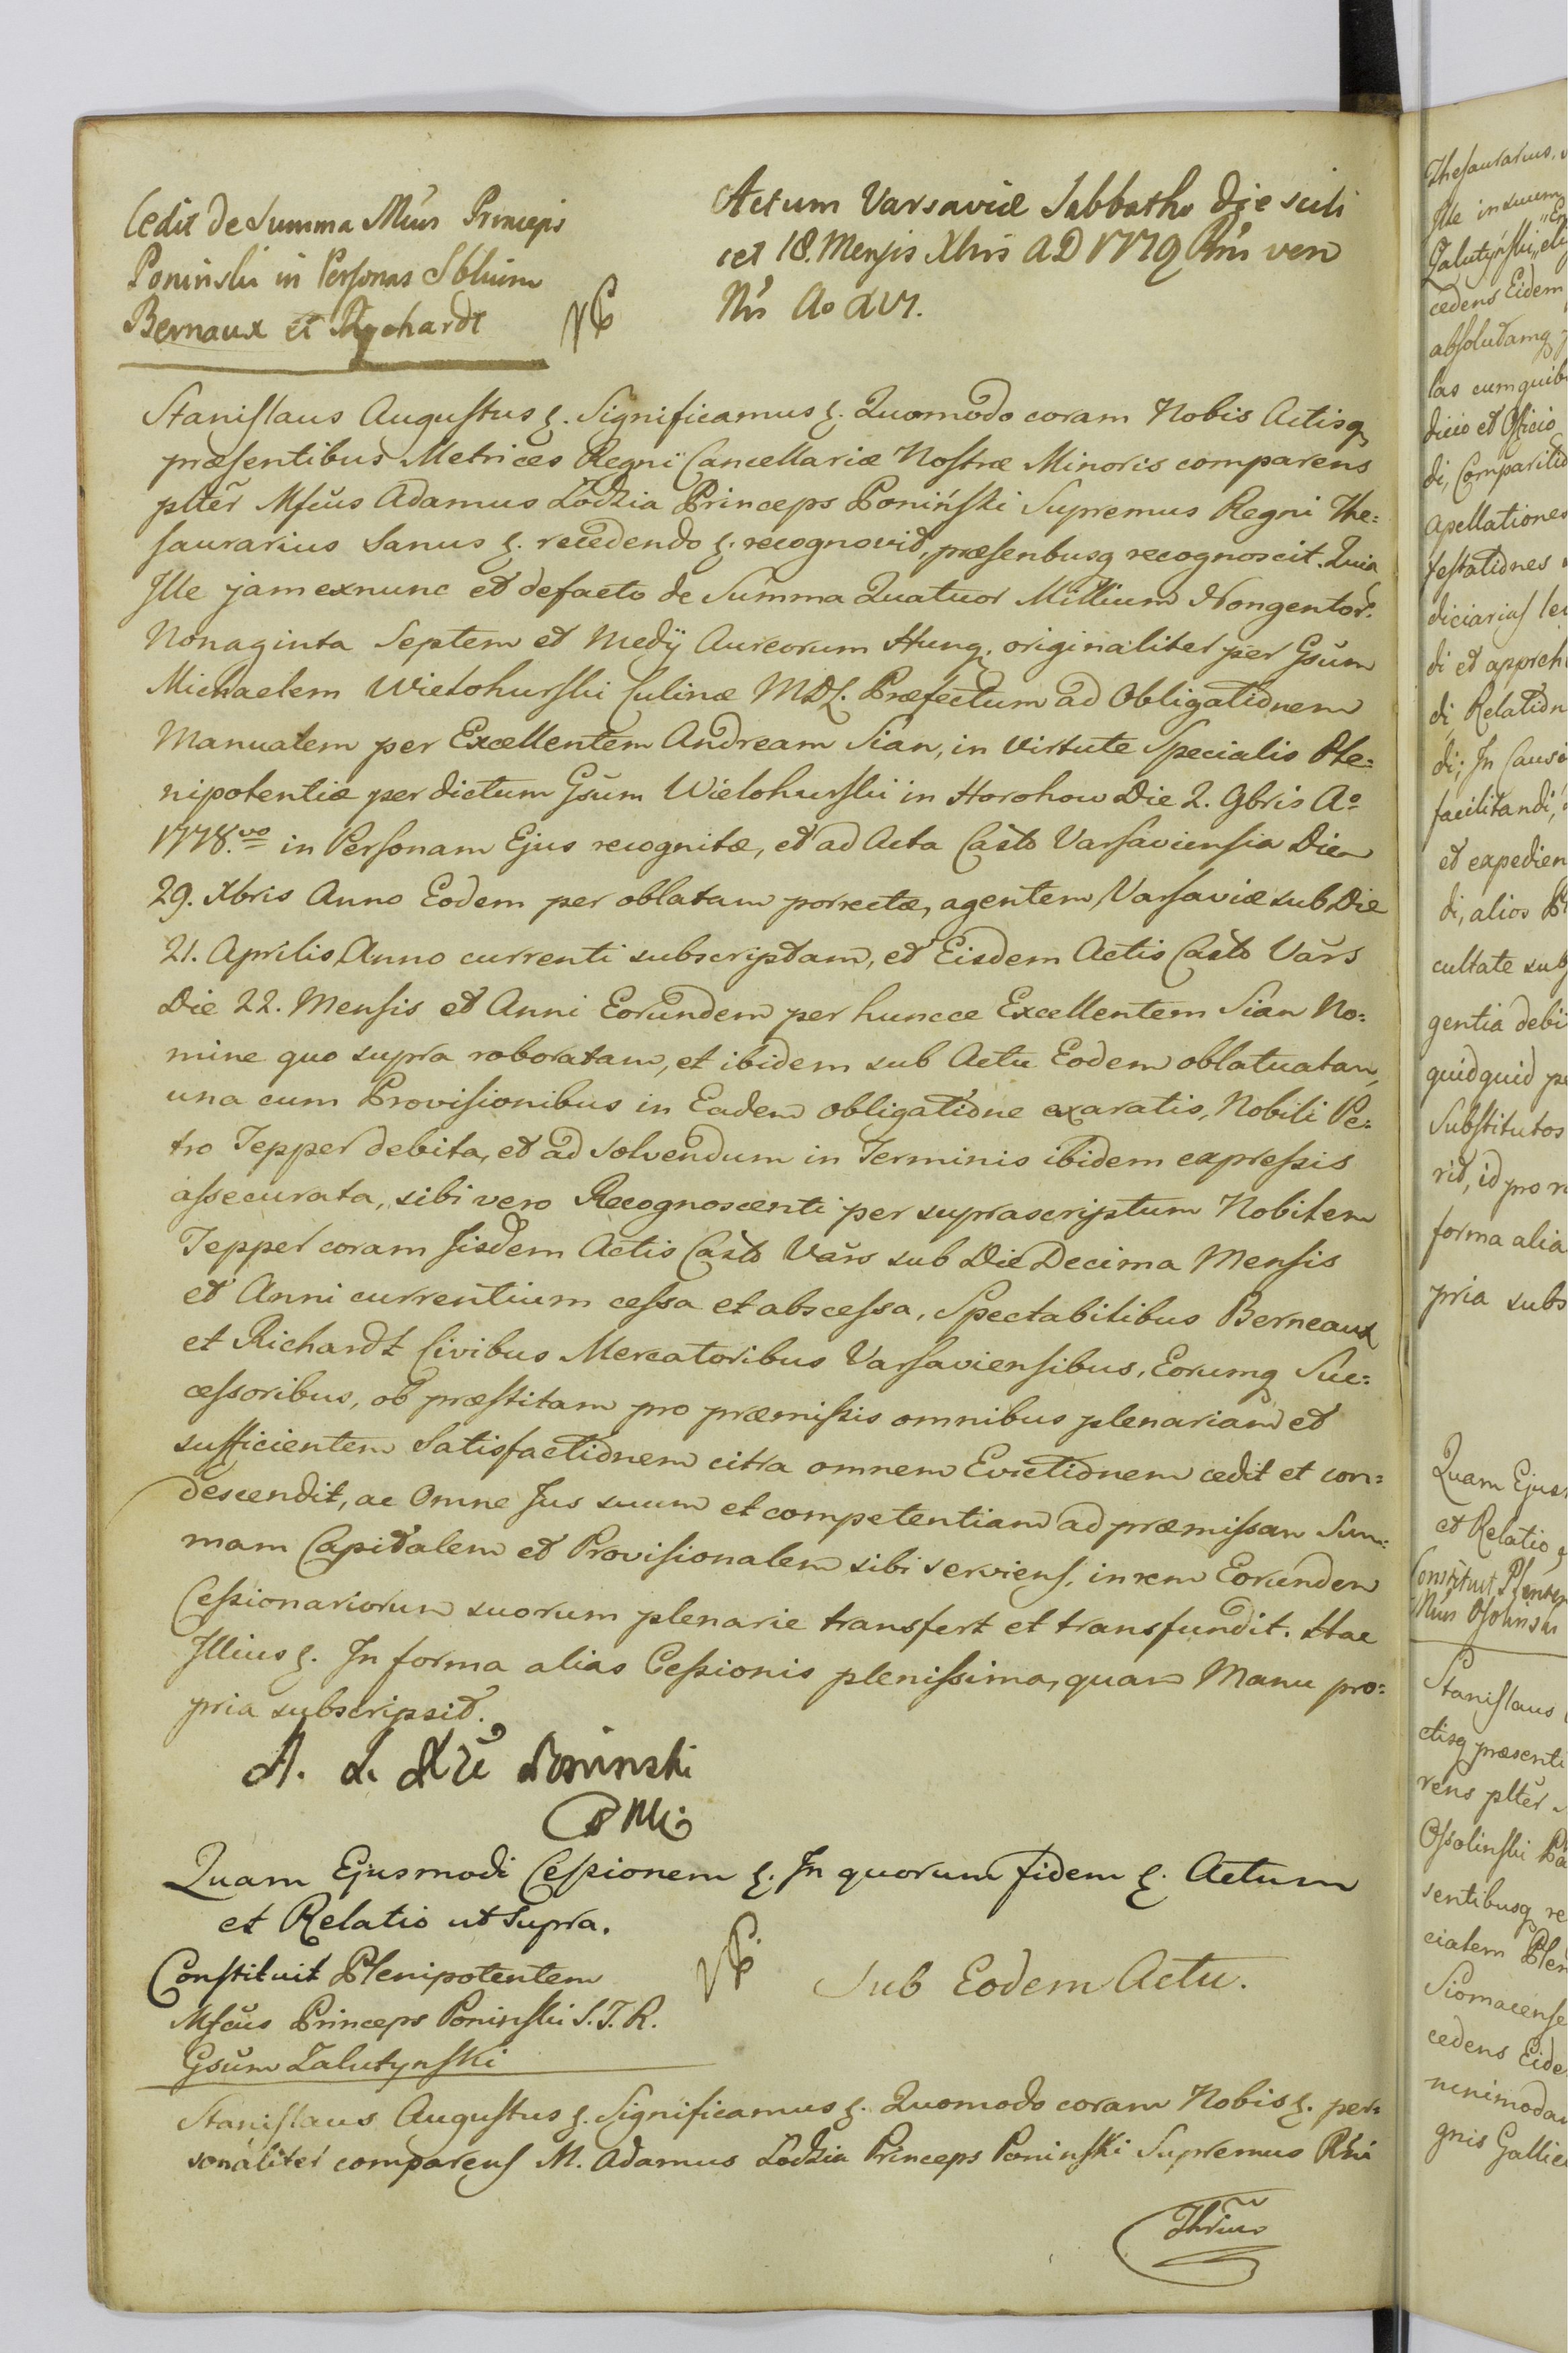 Cedit de Summa Mcus Princeps
Poninski in Personas Sblium
Bernaux et Rychardt
Actum Varsaviæ Sabbatho die scili
cet 18. Mensis Xbris AD 1779 Rni vero
Nri Ao XVI.
Stanislaus Augustus &. Significamus &. Quomodo coram Nobis Actisq
præsentibus Metrices Regni Cancellariæ Nostræ Minoris comparens
plter Mfcus Adamus Łodzia Princeps Poniński Supremus Regni The=
saurarius sanus &. recedendo &. recognovit, præsenbusq recognoscit. Quia
Ille jam exnunc et defacto de Summa Quatuor Millium Nongentor.
Nonaginta Septem et Medij Aureorum Hung. originaliter per Gsum
Michaelem Wielohurski Culinæ MDL. Præfectum ad Obligationem
Manualem per Excellentem Andream Sian, in virtute Specialis Ple=
nipotentiæ per dictum Gsum Wielohurskii in Horohow Die 2. 9bris Ao
1778.vo in Personam Ejus recognitæ, et ad Acta Castr Varsaviensia Die
29. Xbris Anno Eodem per oblatam porrectæ, agentem Varsaviæ sub Die
21. Aprilis Anno currenti subscriptam, et Eisdem Actis Castr Vars
Die 22. Mensis et Anni Eorundem per huncce Excellentem Sian No=
mine quo supra roboratam, et ibidem sub Actu Eodem oblatuatam,
una cum Provisionibus in Eadem obligatione exaratis, Nobili Pe=
tro Tepper debita, et ad solvendum in Terminis ibidem expressis
assecurata, sibi vero Recognoscenti per suprascriptum Nobilem
Tepper coram Iisdem Actis Castr Vars sub Die Decima Mensis
et Anni currentium cessa et abscessa, Spectabilibus Berneaux
et Richardt Civibus Mercatoribus Varsaviensibus, Eorumq Suc=
cessoribus, ob præstitam pro præmissis omnibus plenariam et
sufficientem Satisfactionem citra omnem Evictionem cedit et con=
descendit, ac Omne Jus suum et competentiam ad præmissam Sum=
mam Capitalem et Provisionalem sibi serviens, in rem Eorundem
Cessionariorum suorum plenarie transfert et transfundit. Hac
Illius &. In forma alias Cessionis plenissima, quam Manu pro=
pria subscripsit.
A. L. Xże Poninski
Quam Ejusmodi Cessionem &. In quorum fidem &. Actum
et Relatio ut supra.
Constituit Plenipotentem
Mfcus Princeps Poninski S. T. R.
Gsum Zalutynski
Sub Eodem Actu.
Stanislaus Augustus &. Significamus &. Quomodo coram Nobis &. per=
sonaliter comparens M. Adamus Łodzia Princeps Poninski Supremus Rni
Thrius
Thesaurarius
Ille in suum
Zalutynski
cedens Eidem
absolutamq
las cum quib
dicio et Officio
di, Comparitio
apellationes
festationes
diciarias
di et appreh
di, Relation
di; In Causi
facilitandi,
et expedien
di, alios
cultate sub
gentia debi
quidquid pe
Substitutos
rit, id pro r
forma alia
pria subs
Quam Ejus
et Relatio
Constituit
Stanislaus
ctisq præsenti
rens plter
Ossolinski
sentibusq re
cialem Plen
cedens Eide
nimoda
gnis Gallic